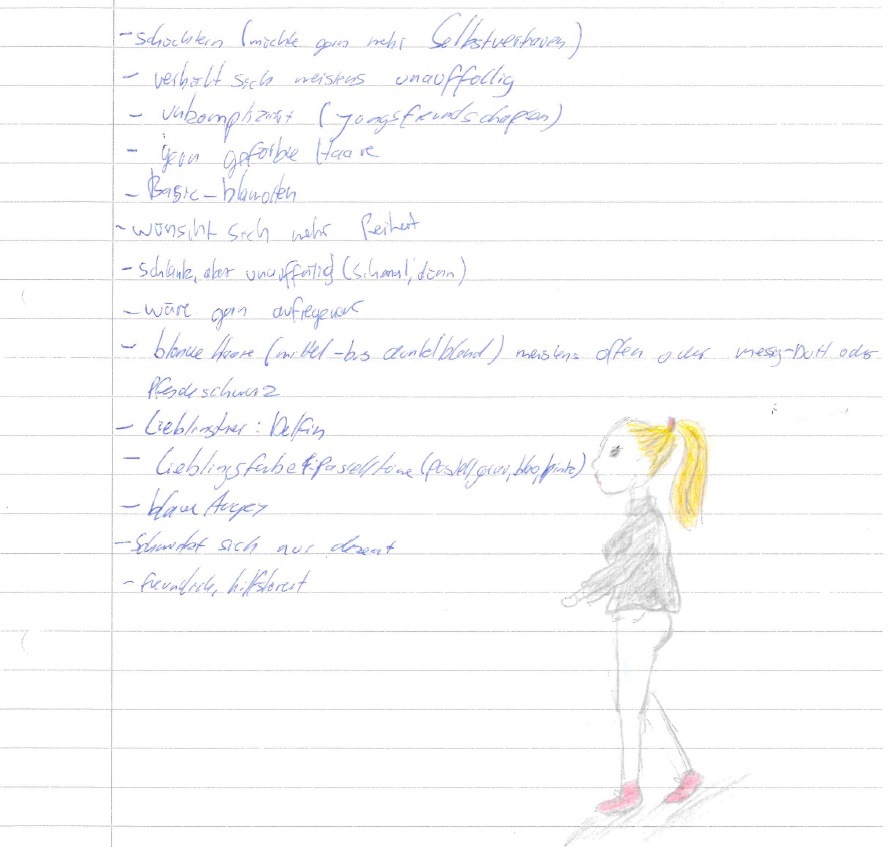 - schüchtern (möchte gern mehr Selbstvertrauen)
- verhält sich meistens unauffällig
- unkompliziert (Jungsfreundschaften)
- gern gefärbte Haare
- Basic-Klamotten
- wünscht sich mehr Freiheit
- schlank, aber unauffällig (schmal, dünn)
- wäre gern aufregender
- blonde Haare (mittel-bis dunkelblond) meistens offen oder messy-Dutt oder
Pferdeschwanz
- Lieblingstier: Delfin
- Lieblingsfarbe: Pastelltöne (pastell, grau, blau, pink)
- blaue Augen
- Schminkt sich nur dezent
- freundlich, hilfsbereit